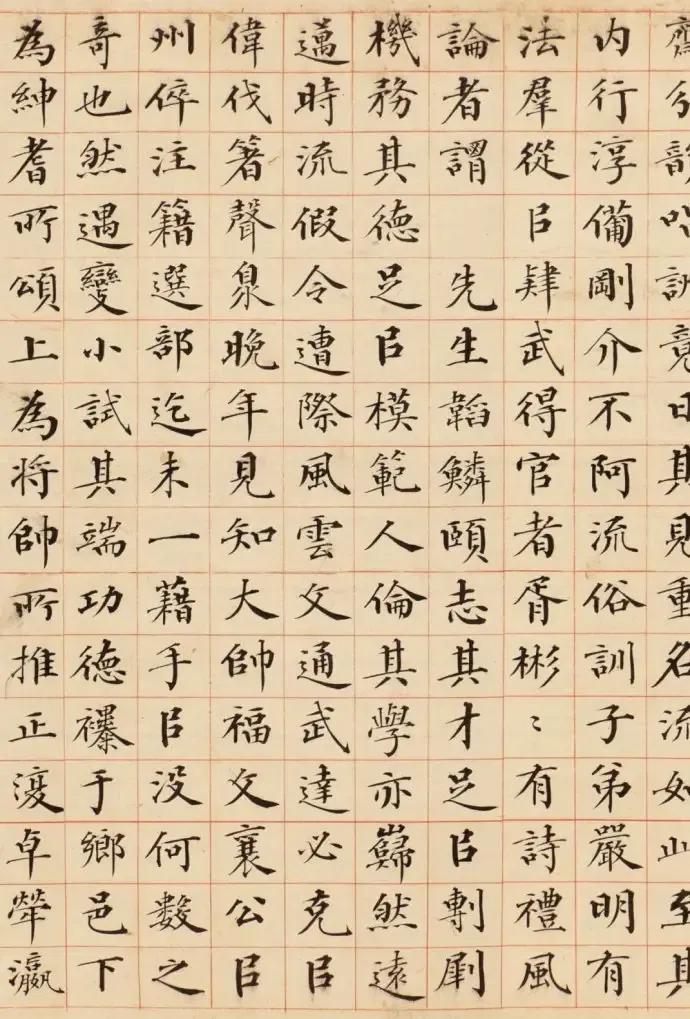 竟日其見重名流如此至其
内行淳備剛介不阿流俗訓子弟嚴明有
法羣從㠯肄武得官者胥彬〻有詩禮風
論者謂 先生韜鱗頤志其才足㠯剸劇
機務其德足㠯模範人倫其學亦巋然遠
邁時流假令遭際風雲文通武達必克㠯
偉伐箸聲臮晚年見知大帥福文襄公㠯
州倅注籍選部迄未一藉手㠯没何數之
奇也然遇變小試其端功德襮于鄉邑下
為紳耆所頌上為將帥所推正復卓犖瀛